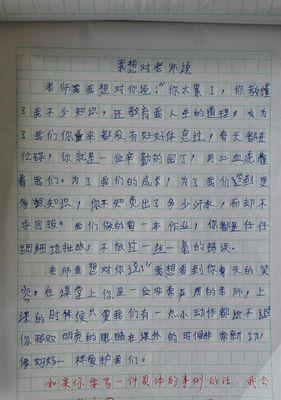 我想对老师说
老师啊我想对你说:"你太累了,你教懂
了我不少知识,还教育我人生的道理,为为
了我们你从来都没有好好休息过,每天都在
忙碌,你就是一位辛勤的园丁,用心血浇灌
着我们。为了我们的成长,为了我们学到更
多的知识,你不知员出了多少汗水,而却不
求回报。我们做的每一本作业,你都是仔仔
细细地批改,不放过一丝一毫的错误。
老师我想对你说:"我想看到你每天的笑
容。在课堂上你是一位非常严厉的老师,上
课的时候只要我们有一点小动作都逃不过
你那双明亮的眼睛在课外的时候非常亲切,
像妈妈一样爱护我们。
如果你学写一件具体的事例的话,我会